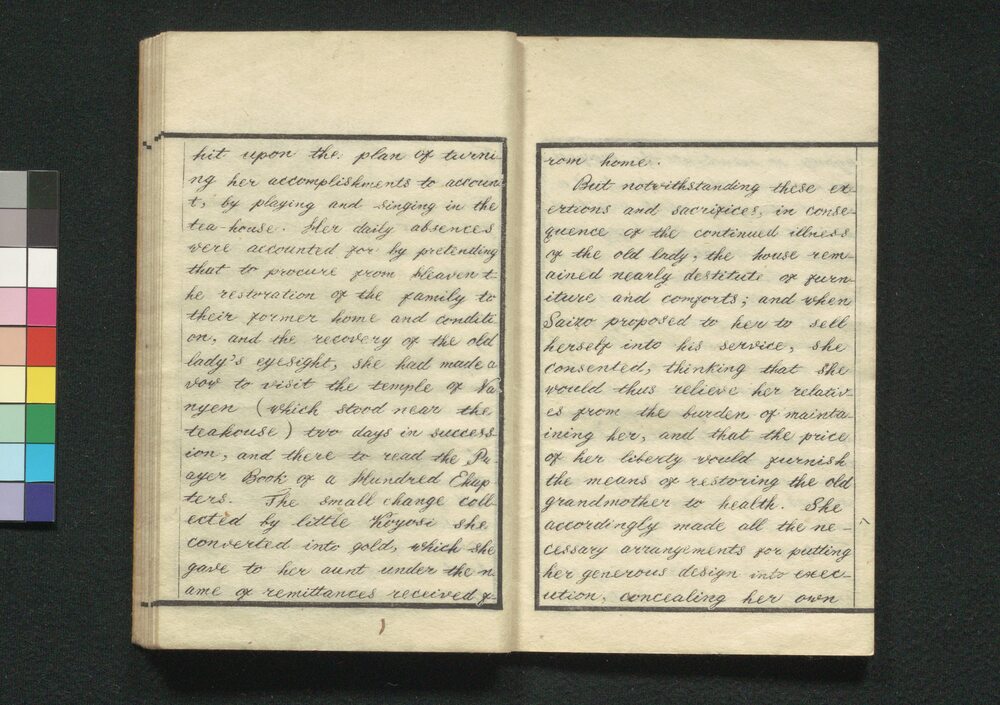 hit upon the plan of turni-
ng her accomplishments to accoun-
t, by playing and singing in the
tea-house. Her daily absences
were accounted for by pretending
that to procure from Heaven t-
he restoration of the family to
their former home and conditi-
on, and the recovery of the old
lady's eyesight, she had made a
vow to visit the temple of Na-
nyen (which stood near the
teahouse) two days in success-
ion, and there to read the Pr-
ayer Book of a Hundred Chap-
ters. The small change coll-
ected by little Koyosi she
converted into gold, which she
gave to her aunt under the n-
ame of remittances received f-
rom home.
But notwithstanding these ex-
ertions and sacrifices, in conse-
quence of the continued illness
of the old lady, the house rem-
ained nearly destitute of furn-
iture and comforts; and when
Saizo proposed to her to sell
herself into his service, she
consented, thinking that she
would thus relieve her relativ-
es from the burden of mainta-
ining her, and that the price
of her liberty would furnish
the means of restoring the old
grandmother to health. She
accordingly made all the ne-
cessary arrangements for putting
her generous design into exec-
ution, concealing her own